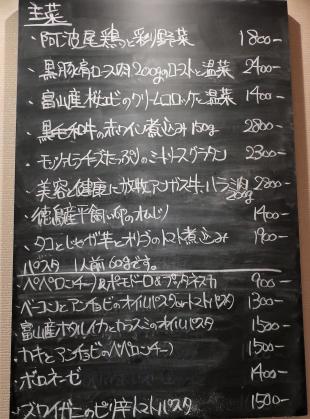 主菜
・阿波尾鶏と彩野菜 1800-
・黒豚肩ロース肉200gのローストと温菜 2400-
・富山産桜エビのクリームコロッケと温菜 1400-
・黒毛和牛の赤ワイン煮込み150g 2800-
・モッツァレラチーズたっぷりのミートソースグラタン 2300-
・美容と健康に 放牧アンガス牛ハラミ 200g 2200-
・徳島産平飼い卵のオムレツ 1400-
・タコとじゃが芋とオリーブのトマト煮込み 1900-
パスタ 1人前60gです。
・ペペロンチーノ&ポモドーロ&プッタネスカ 900-
・ベーコンとアンチョビのオイルパスタ(orトマトパスタ) 1300-
・富山産ホタルイカとカラスミのオイルパスタ 1500-
・カキとアンチョビのペペロンチーノ 1500-
・ボロネーゼ 1400-
・ズワイガニのピリ辛トマトパスタ 1500-